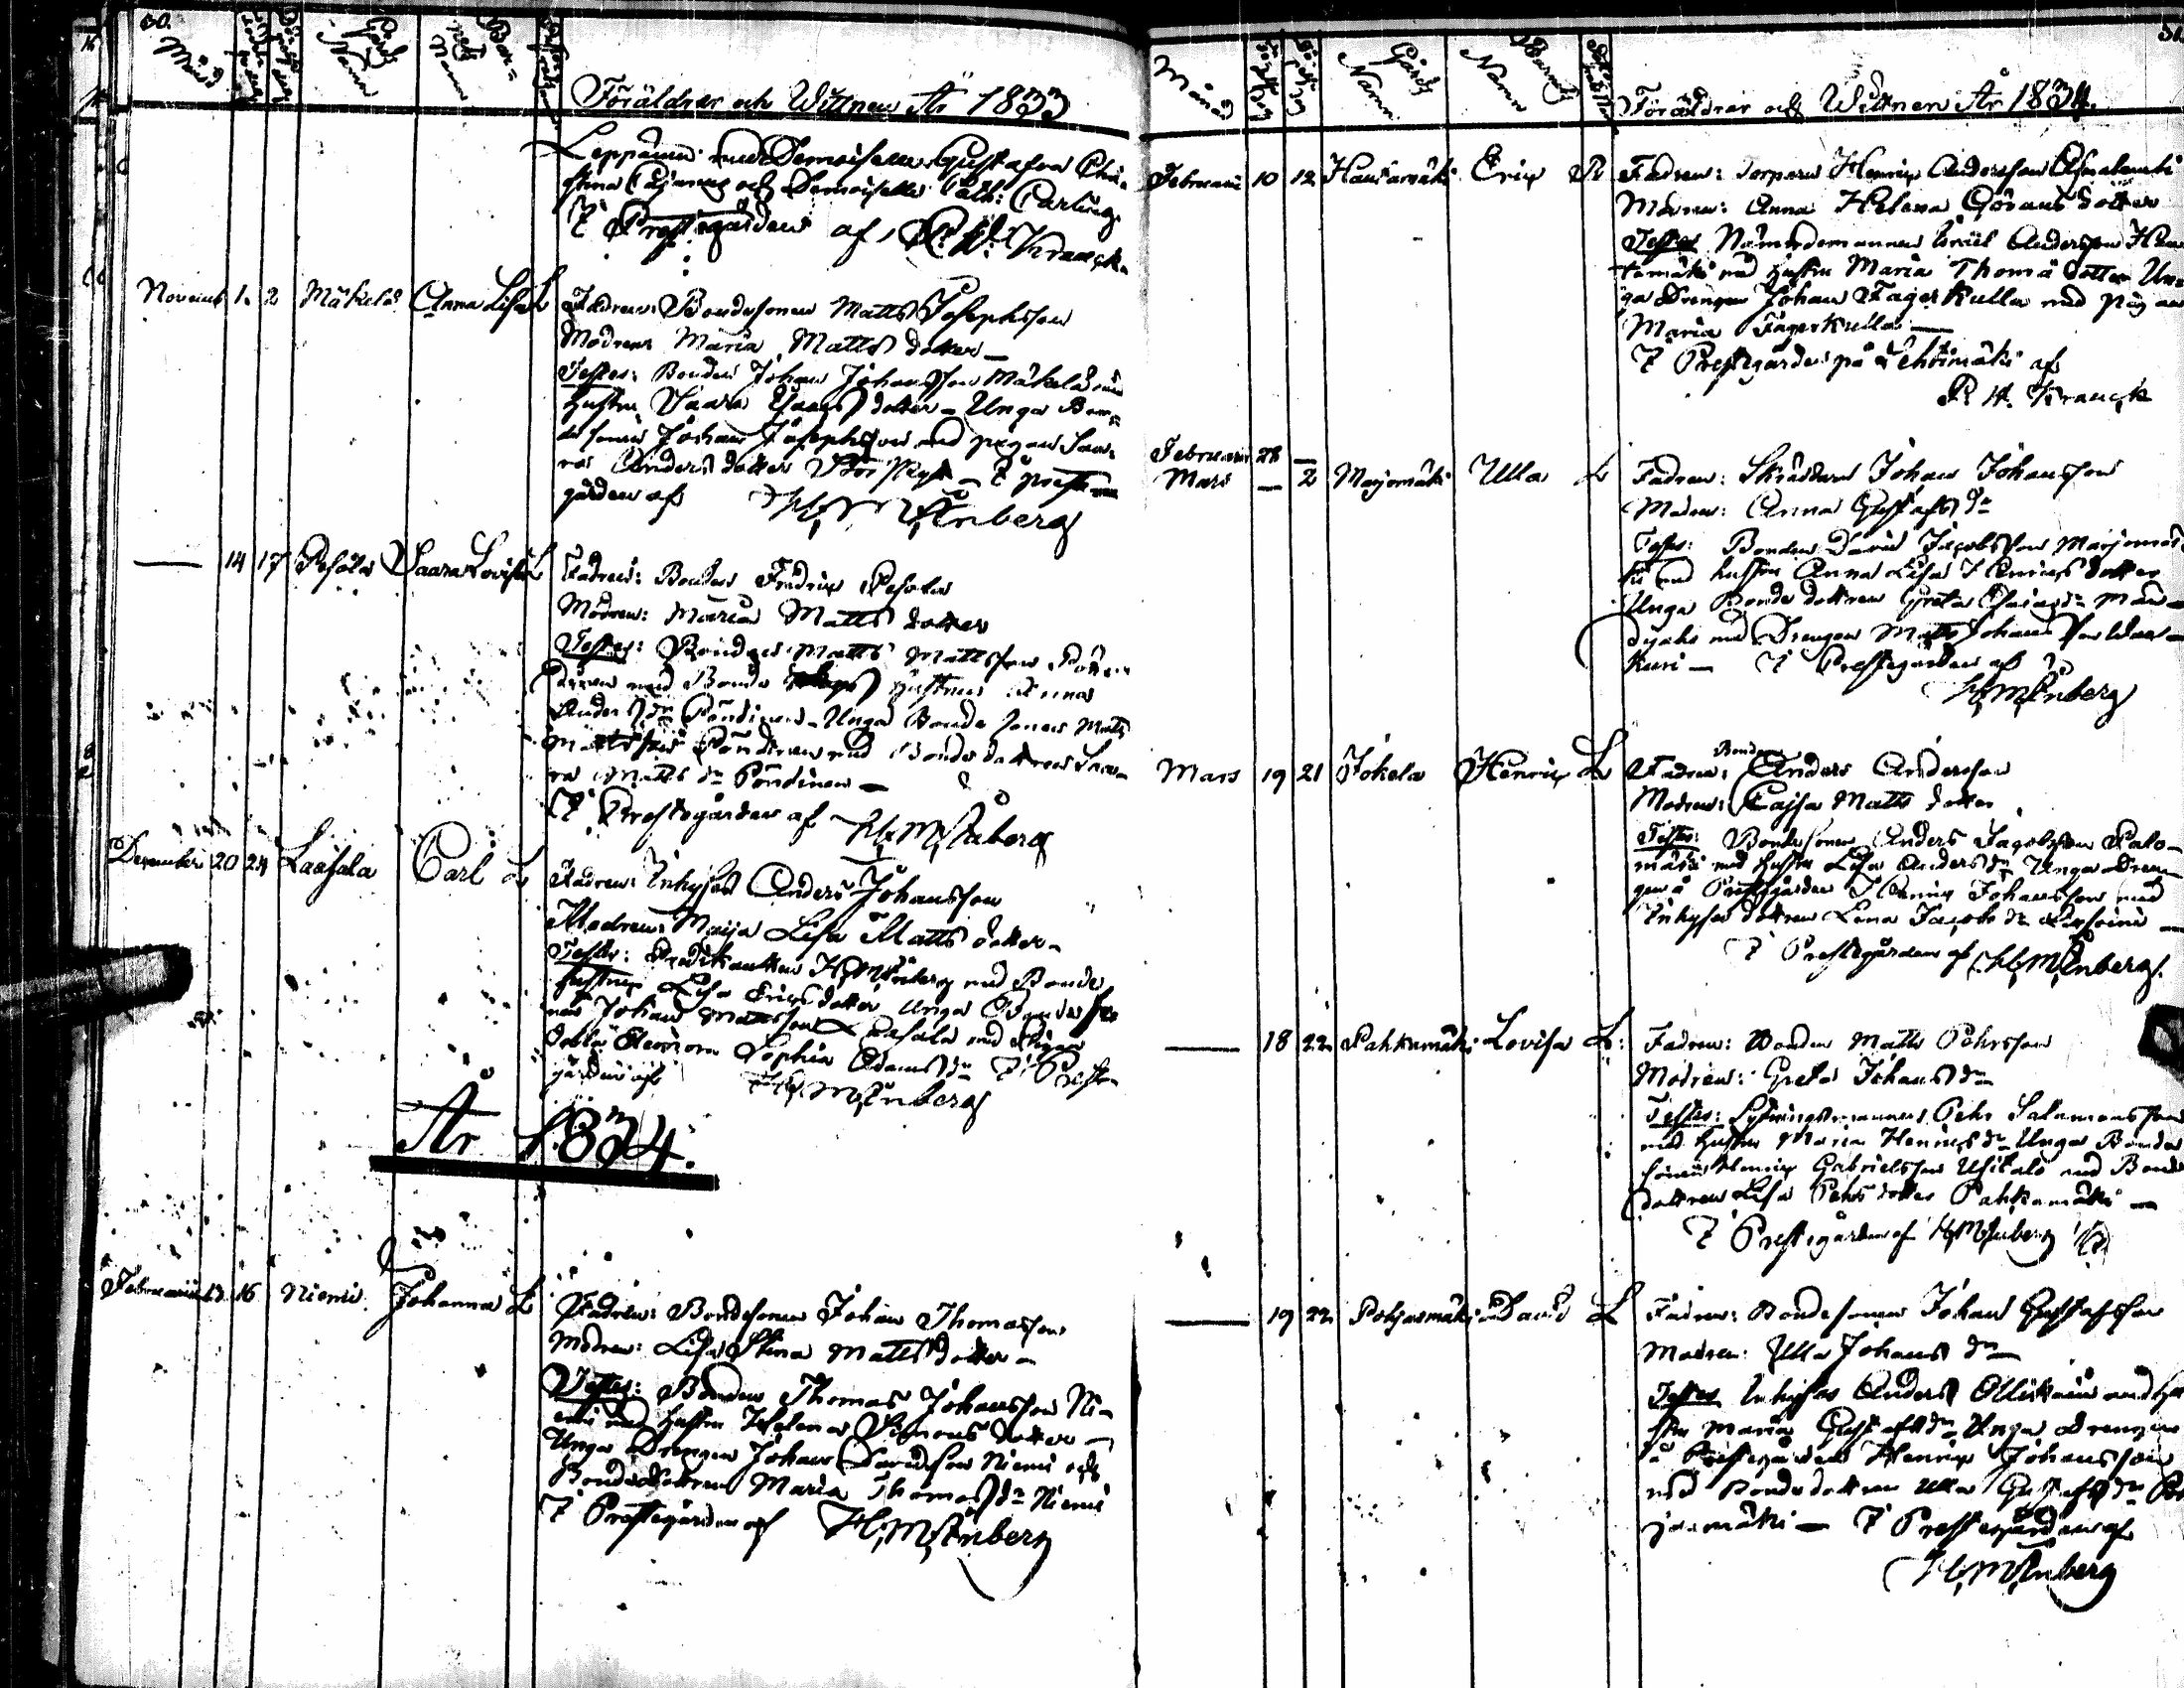 60.
Månad
Gårds Namn
Barnets Namn
Föräldrar och Wittnen År 1833
Leppänen med Demoisellen Gustafva Chri-
stina och Demoisellen Cath:
I Prestgården af R. H. Kranck.
November 1. 2 Mäkelä Anna Lisa L
Fadren: Bondesonen Matts Josephsson
Modren Maria Matts dotter
Testes: Bonden Johan Johansson Mäkelä med
hustru Saara dotter - Unga Bon-
de sonen Johan Josephsson med pigan Saa-
ra Anders dotter - I Prest-
gården af H. M. Enberg
— 14 17 Pesola Saara Lovisa L
Fadren: Bonden Fredric Pesola
Modren: Maria Matts dotter
Testes: Bonden Matts Mattsson
med Bonde hustrun Anna
Anders dr Pöndinen - Unga Bonde sonen Matts
Mattsson Pöndinen med Bonde dottren Saa-
ra Matts dr Pöndinen —
I Prestegården af H. M. Enberg
December 20 24 Laasala Carl L
Fadren: Inhyses Anders Johansson
Modren: Maija Lisa Matts dotter
Testes: Predikanten H. M. Enberg med Bonde
hustrun Lisa Erics dotter Unga Bonde so-
nen Johan Mattsson Laasala med Pigan
Eleonora Sophia Adams dr I Prest-
gården af H. M. Enberg
År 1834.
Februarii 13 16 Niemi Johanna L
Fadren: Bondesonen Johan Thomasson
Modren: Lisa Stina Matts dotter
Testes: Bonden Thomas Johansson Ni-
emi med hustru Helena Simons dotter
Unga Drengen Johan Davidsson Niemi och
Bondedottren Maria Thomas dr Niemi
I Prestegården af H. M. Enberg
Månad
Gårds Namn
Barnets Namn
Föräldrar och Wittnen År 1834.
Februarii 10 12 Eric
Fadren: Torparen Henric Andersson
Modren: Anna Helena Görans dotter
Testes Nämndemannen Israel Andersson
med hustru Maria Thomæ dotter Un-
ga Drengen Johan Fagerkulla med pigan
Maria Fagerkulla —
I Prestegården på Lehtimäki af
R. H. Kranck
Februarii 28 —
Mars — 2 Marjomäki Ulla L
Fadren: Skräddaren Johan Johansson
Modren: Anna Gustafs dr
Testes: Bonden David Jacobsson Marjomä-
ki med hustru Anna Lisa Henrics dotter
Unga Bonde dottren Greta
med Drengen Matts Johansson
I Prestegården af
H. M. Enberg
Mars 19 21 Jokela Henric L
Fadren: Bonden Anders Andersson
Modren: Cajsa Matts dotter
Testes: Bondesonen Anders Jacobsson Palo-
mäki med hustru Lisa Anders dr Unga Dren-
gen å Prestgården Henric Johansson med
Inhyses dottren Lena Jacobs dr
I Prestegården af H. M. Enberg.
— 18 22 Pahkamäki Lovisa L:
Fadren: Bonden Matts Pehrsson
Modren: Greta Johans dr
Testes: Pehr Salamonsson
med hustru Maria Henrics dr Unga Bonde
sonen Henric Gabrielsson Usitalo med Bonde
dottren Lisa Pehrs dotter Pahkamäki —
I Prestegården af H. M. Enberg
— 19 22 Pohjasmäki David L
Fadren: Bondesonen Johan Gustafsson
Modren: Ulla Johans dr
Testes Inhyses Anders Ollikain med hu-
stru Maria Gustafs dr Unga Drengen
å Prestegården Henric Johansson
med Bonde dottren Ulla Gustafs dr Poh-
jasmäki — I Prestegården af
H. M. Enberg